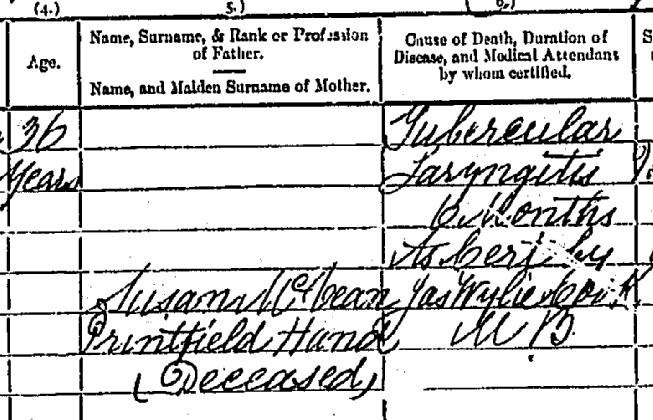 (4.) 5.) 6.)
Age.
Name, Surname, & Rank or Profession
of Father.
Name, and Maiden Surname of Mother.
Cause of Death, Duration of
Disease, and Medical Attendant
by whom certified.
36
Years
Susan McBean
Printfield Hand
(Deceased)
Tubercular
Laryngitis
6 Months
As Cert by
Jas Wylie
M B